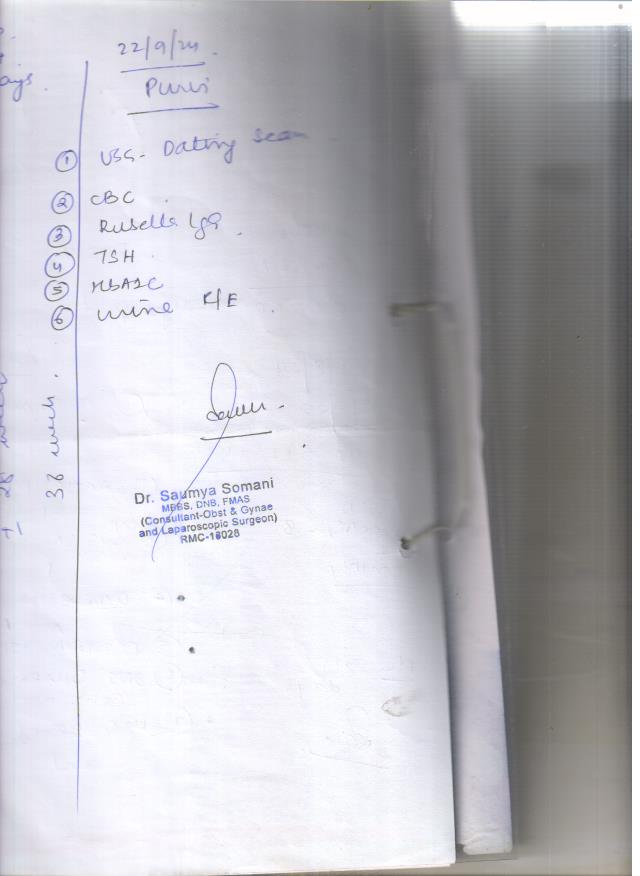 22/9/24.
Purvi
① USG - Dating Scan
② CBC
③ Rubella IgG
④ TSH
⑤ HbA1C
⑥ urine R/E
Dr. Saumya Somani
MBBS, DNB, FMAS
(Consultant-Obst & Gynae
and Laparoscopic Surgeon)
RMC-18028
ays.
38 week.
28 week